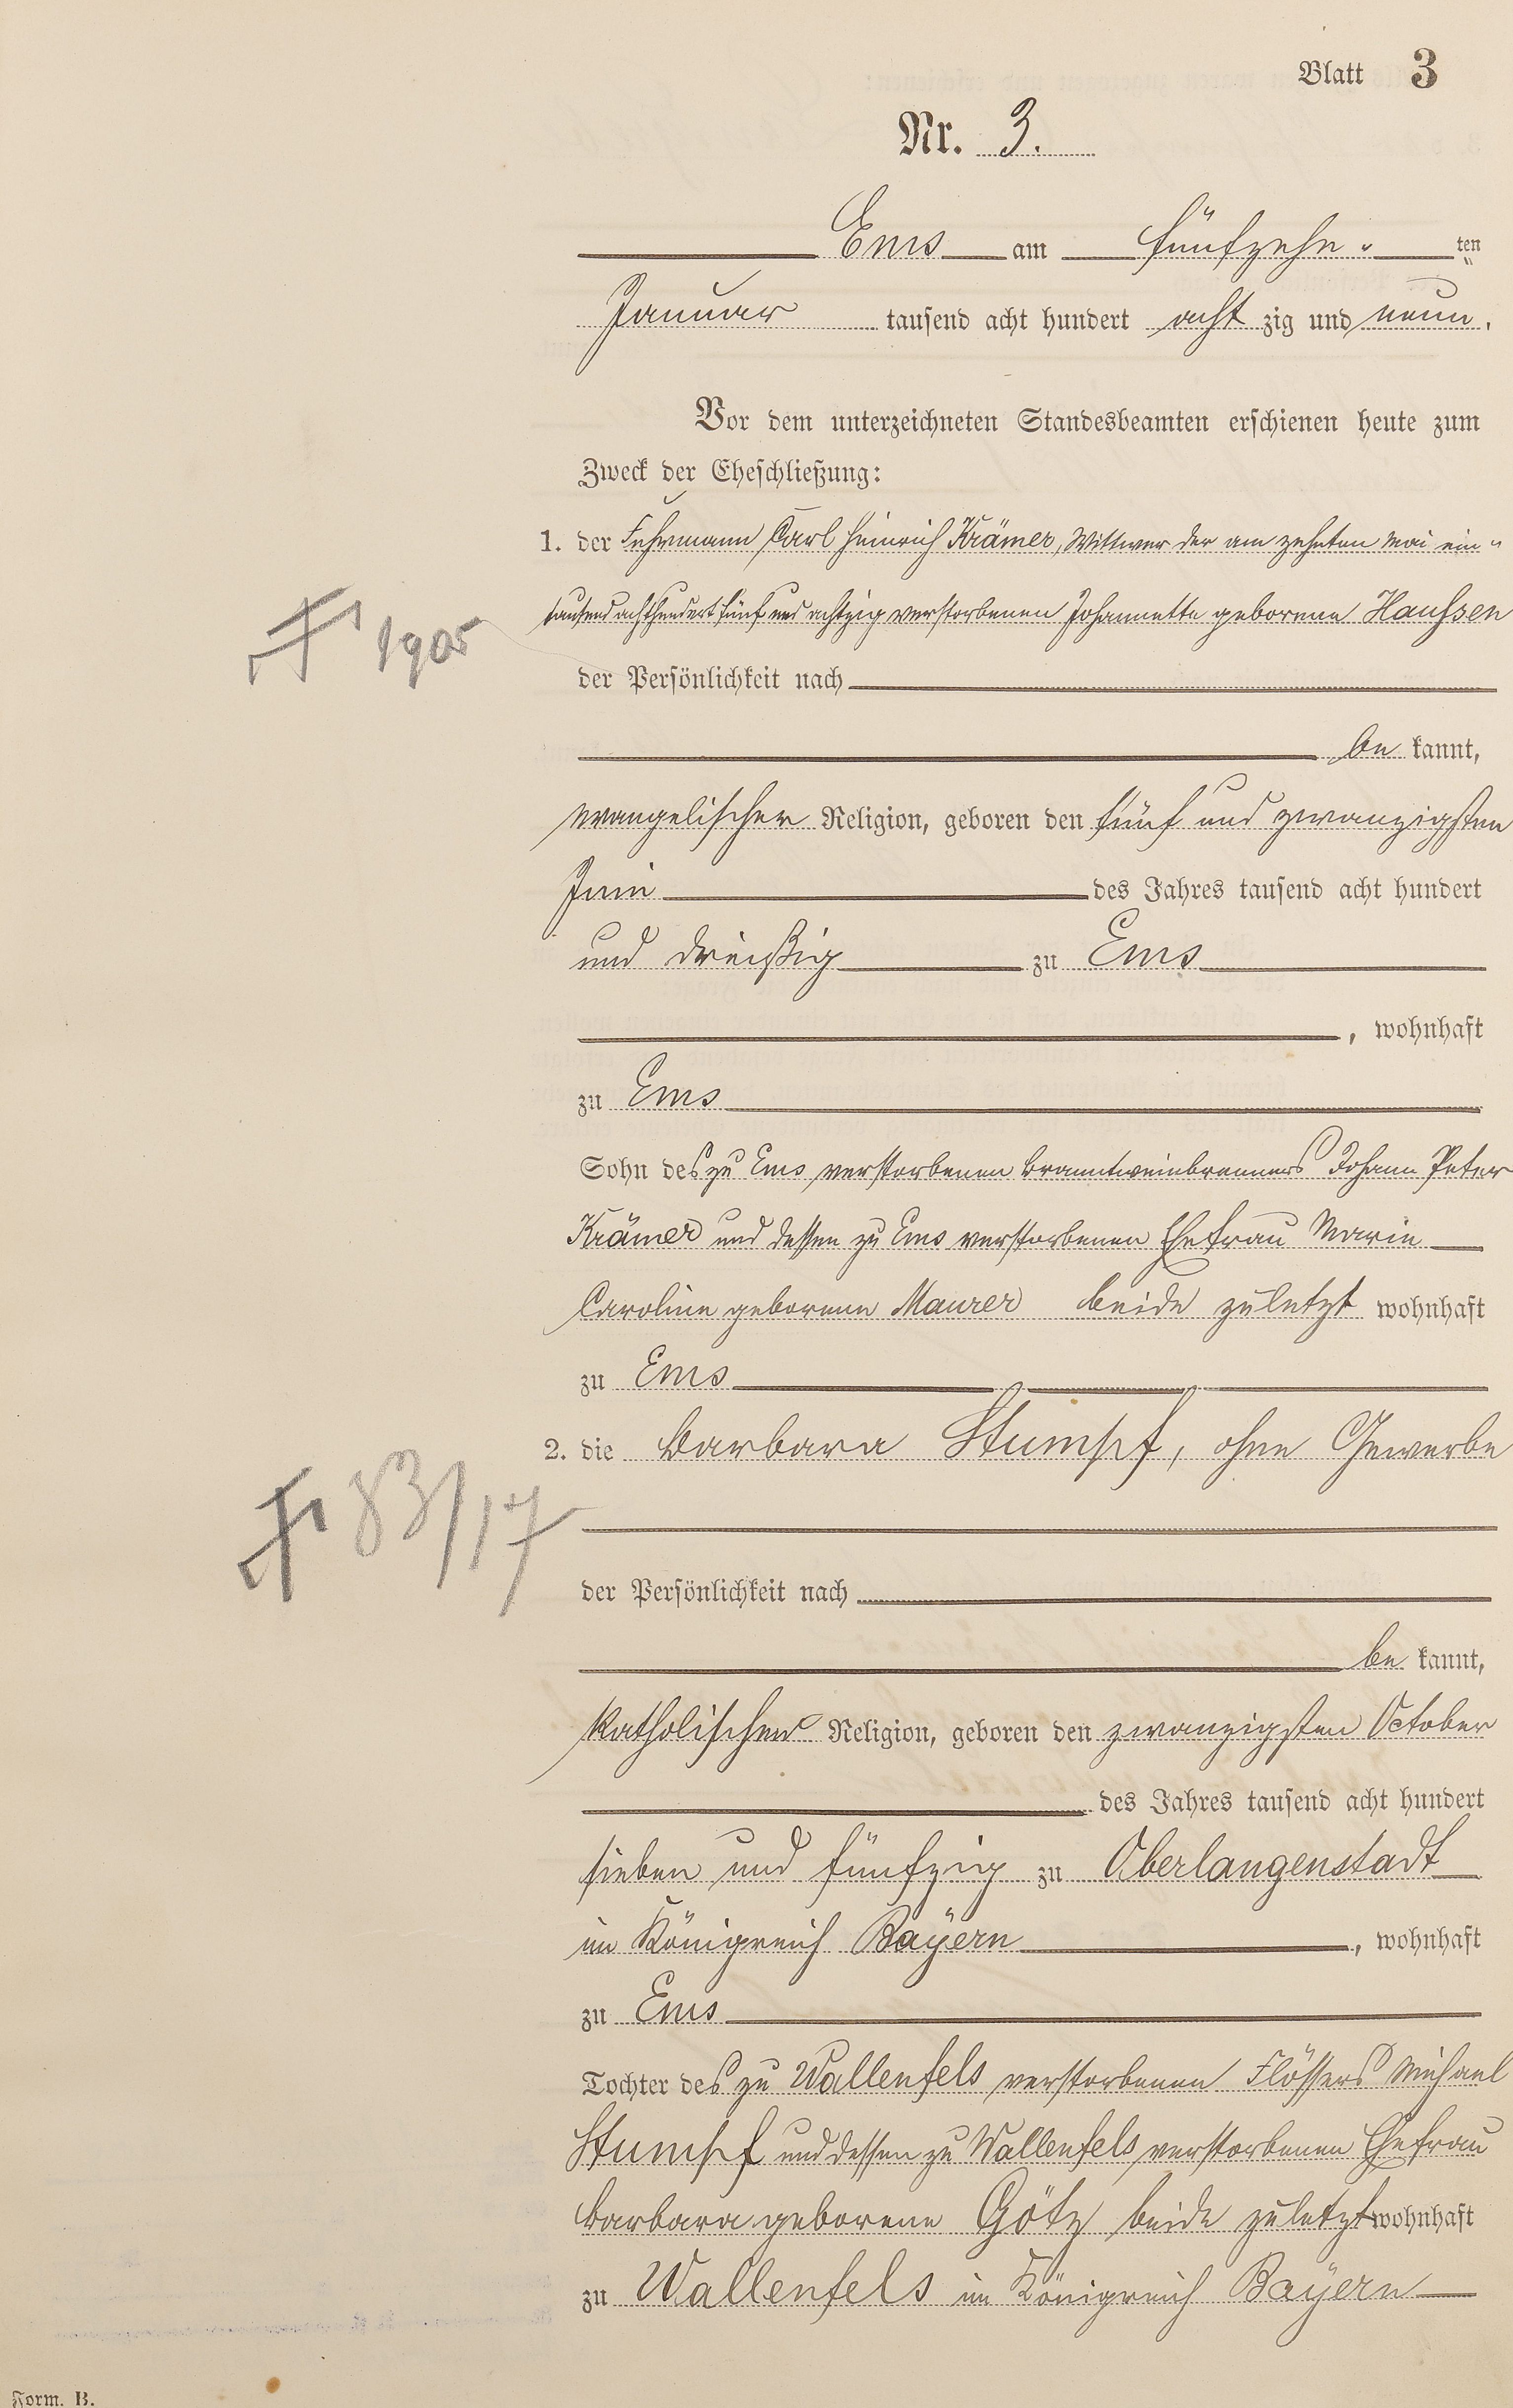 Blatt 3
Nr. 3.
Ems am fünfzehn- ten
Januar tausend acht hundert acht zig und neun.
Vor dem unterzeichneten Standesbeamten erschienen heute zum
Zweck der Eheschließung:
1. der Fuhrmann Carl Heinrich Krämer, Wittwer der am zehnten Mai ein-
tausend achthundert fünf und achtzig verstorbenen Johannette geborene Haußsen
der Persönlichkeit nach
be kannt,
evangelischer Religion, geboren den fünf und zwanzigsten
Juni des Jahres tausend acht hundert
und dreißig zu Ems
, wohnhaft
zu Ems
Sohn des zu Ems verstorbenen Branntweinbrenners Johann Peter
Krämer und dessen zu Ems verstorbenen Ehefrau Marie
Caroline geborene Maurer beide zuletzt wohnhaft
zu Ems
2. die Barbara Stumpf, ohne Gewerbe
der Persönlichkeit nach
be kannt,
katholischer Religion, geboren den zwanzigsten October
des Jahres tausend acht hundert
sieben und fünfzig zu Oberlangenstadt
im Königreich Bayern, wohnhaft
zu Ems
Tochter des zu Wallenfels verstorbenen Flössers Michael
Stumpf und dessen zu Wallenfels verstorbenen Ehefrau
Barbara geborene Götz beide zuletzt wohnhaft
zu Wallenfels im Königreich Bayern
1905
83/17
Form. B.